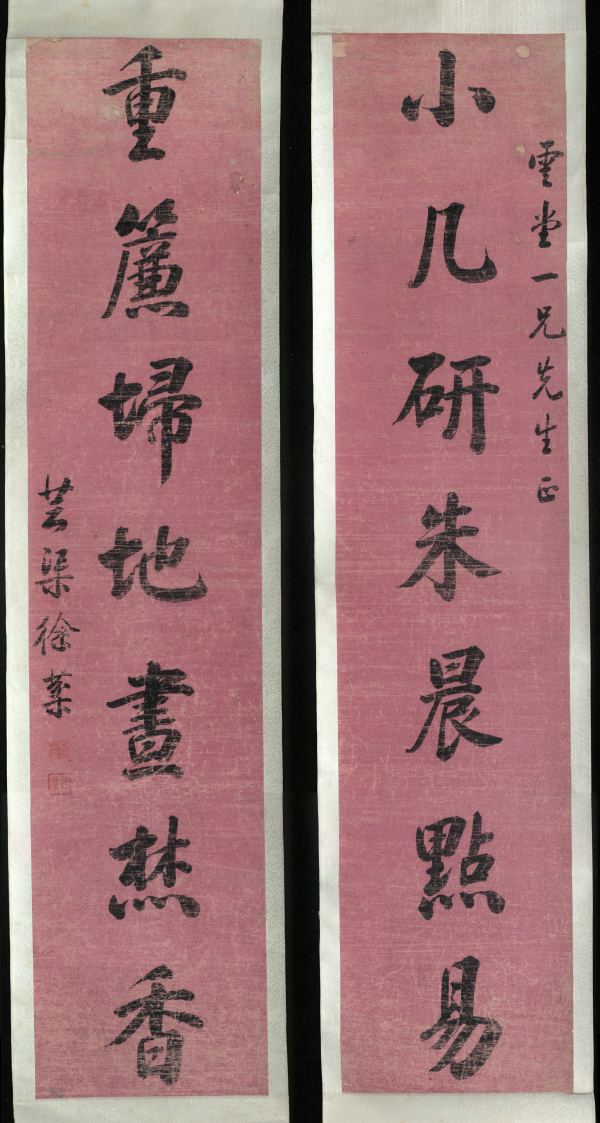 雲堂一兄先生正
小几研朱晨點易
重簾埽地晝焚香
芸渠徐棻